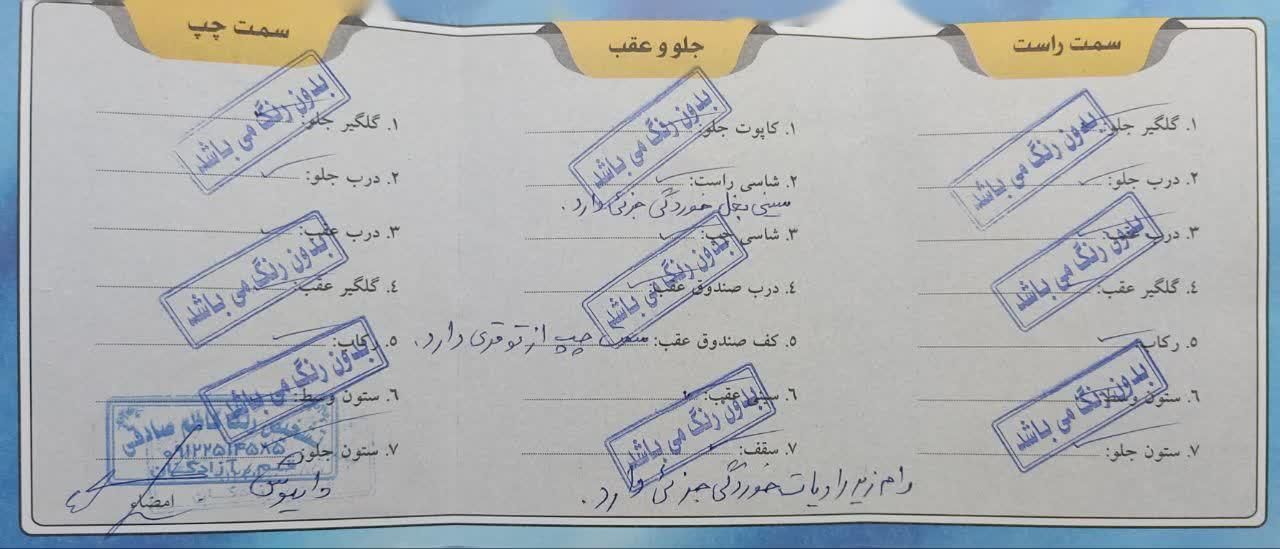 سمت راست
۱. گلگیر جلو:
۲. درب جلو:
۳. درب عقب:
۴. گلگیر عقب:
۵. رکاب:
۶. ستون وسط:
۷. ستون جلو:
بدون رنگ می باشد
بدون رنگ می باشد
بدون رنگ می باشد
جلو و عقب
۱. کاپوت جلو:
۲. شاسی راست:
سینی بغل خوردگی جزئی دارد.
۳. شاسی چپ:
۴. درب صندوق عقب:
۵. کف صندوق عقب: سمت چپ از تو قری دارد.
۶. سینی عقب:
۷. سقف:
رام زیر رادیات خوردگی جزئی دارد.
بدون رنگ می باشد
بدون رنگ می باشد
بدون رنگ می باشد
سمت چپ
۱. گلگیر جلو:
۲. درب جلو:
۳. درب عقب:
۴. گلگیر عقب:
۵. رکاب:
۶. ستون وسط:
۷. ستون جلو:
بدون رنگ می باشد
بدون رنگ می باشد
بدون رنگ می باشد
تشخیص رنگ کاظم صادقی
۰۹۱۲۲۵۱۴۵۸۵
داریوش
امضاء